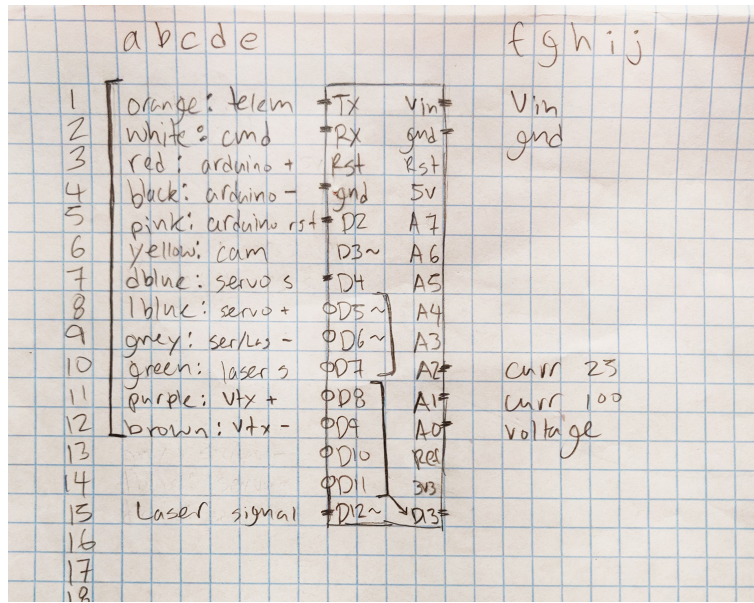 a b c d e f g h i j
1 orange: telem TX Vin Vin
2 white: cmd RX gnd gnd
3 red: arduino + Rst Rst
4 black: arduino - gnd 5v
5 pink: arduino rst D2 A7
6 yellow: cam D3~ A6
7 dblue: servo s D4 A5
8 lblue: servo + D5~ A4
9 grey: ser/Las - D6~ A3
10 green: laser s D7 A2 curr 25
11 purple: Vtx + D8 A1 curr 100
12 brown: Vtx - D9 A0 voltage
13 D10 Ref
14 D11 3v3
15 Laser signal D12~ D13
16
17
18